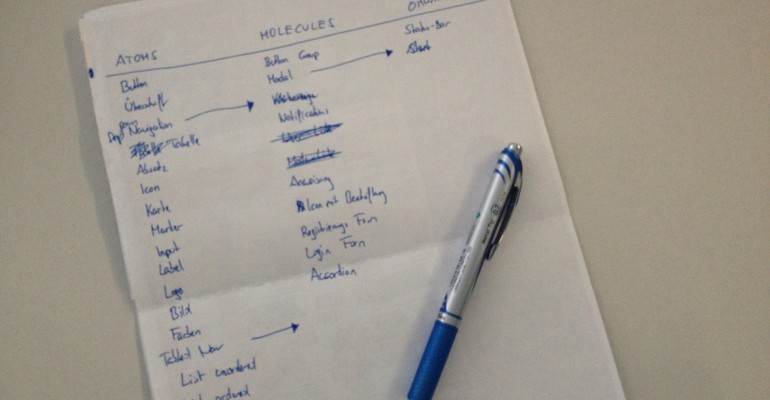 ATOMS
Button
Überschrift
Navigation
Tabelle
Absatz
Icon
Karte
Marker
Input
Label
Logo
Bild
Farben
Tabbed Nav
List unordered
ordered
MOLECULES
Button Group
Modal
Notifications
Anzeige
Icon mit Beschriftung
Registrierungs Form
Login Form
Accordion
Status-Bar